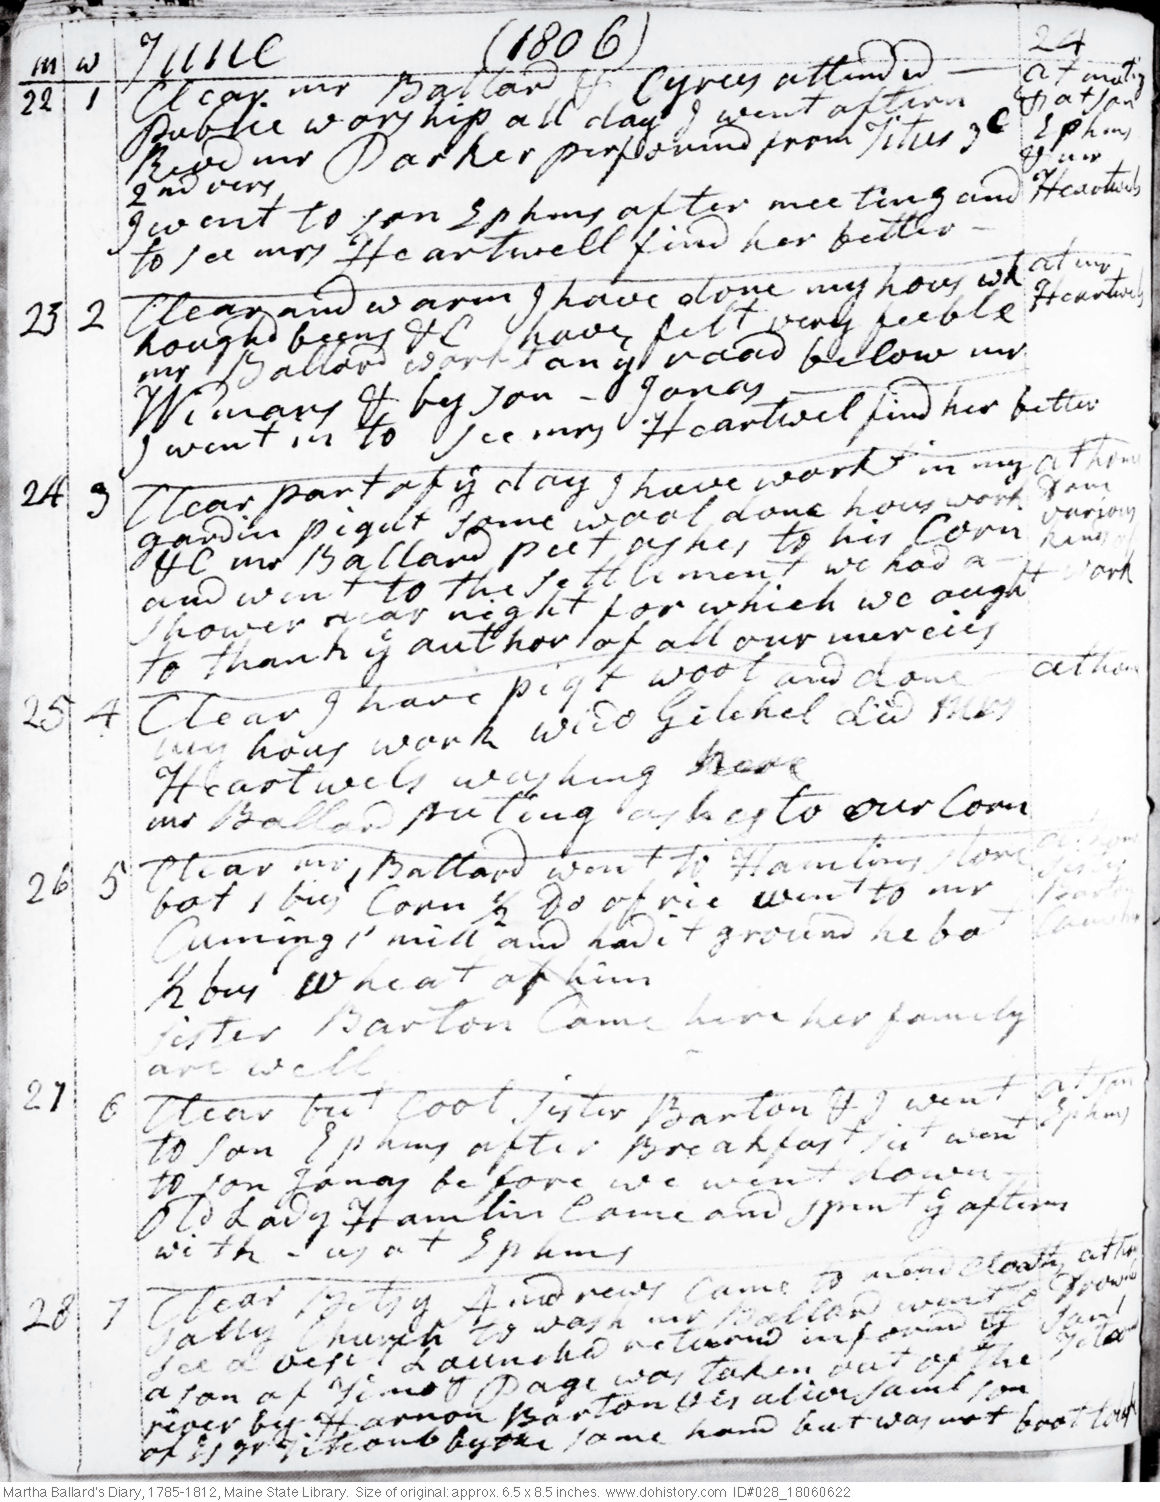 m w June (1806) 24
22 1 Clear mr Ballard & Cyrus attended at meetig
Public worship all day I went aftern & at son
Revd mr Parker performd from Titus 3 C Ephms
2nd vers & mr
I went to son Ephms after meeting and Heartwels
to see mrs Heartwell find her better
23 2 Clear and warm I have done my hous wk at mr
hough'd beens &C I have felt very feeble Heartwels
mr Ballard workt on ye road below mr
Wimans & by son Jonas
I went in to see mrs Heartwel find her better
24 3 Clear part of ye day I have workt in my at home
gardin pigut some wool done hous work
&C mr Ballard put ashes to his Corn various
and went to the settlement we had a kinds of
shower near night for which we ought work
to thank ye author of all our mercies
25 4 Clear I have pigt wool and done at home
my hous work wido Gilchel did Mrs
Heartwels washing here
mr Ballard puting ashes to our Corn
26 5 Clear mr Ballard went to Hamlins store at home
bot 1 bus Corn ½ Do of rie went to mr sister
Cumings mill and had it ground he bot Barton
½ bus wheat of him Came here
sister Barton Came here her family
are well
27 6 Clear but Cool sister Barton & I went at son
to son Ephms after Breakfast sist went Ephms
to son Jonas before we went down
Old Lady Hamlin Came and spent ye aftern
with us at Ephms
28 7 Clear Betsy Andrews Came to mend Cloaths at
Sally Church to wash mr Ballard went to
see a vesil Launched returnd informd yt
a son of Timoy Page was taken out of the
river by Harnon Barton & is alive Saml son
of Titcomb by the same hand but was not brot to
Martha Ballard's Diary, 1785-1812, Maine State Library. Size of original: approx. 6.5 x 8.5 inches. www.dohistory.com ID#028_18060622